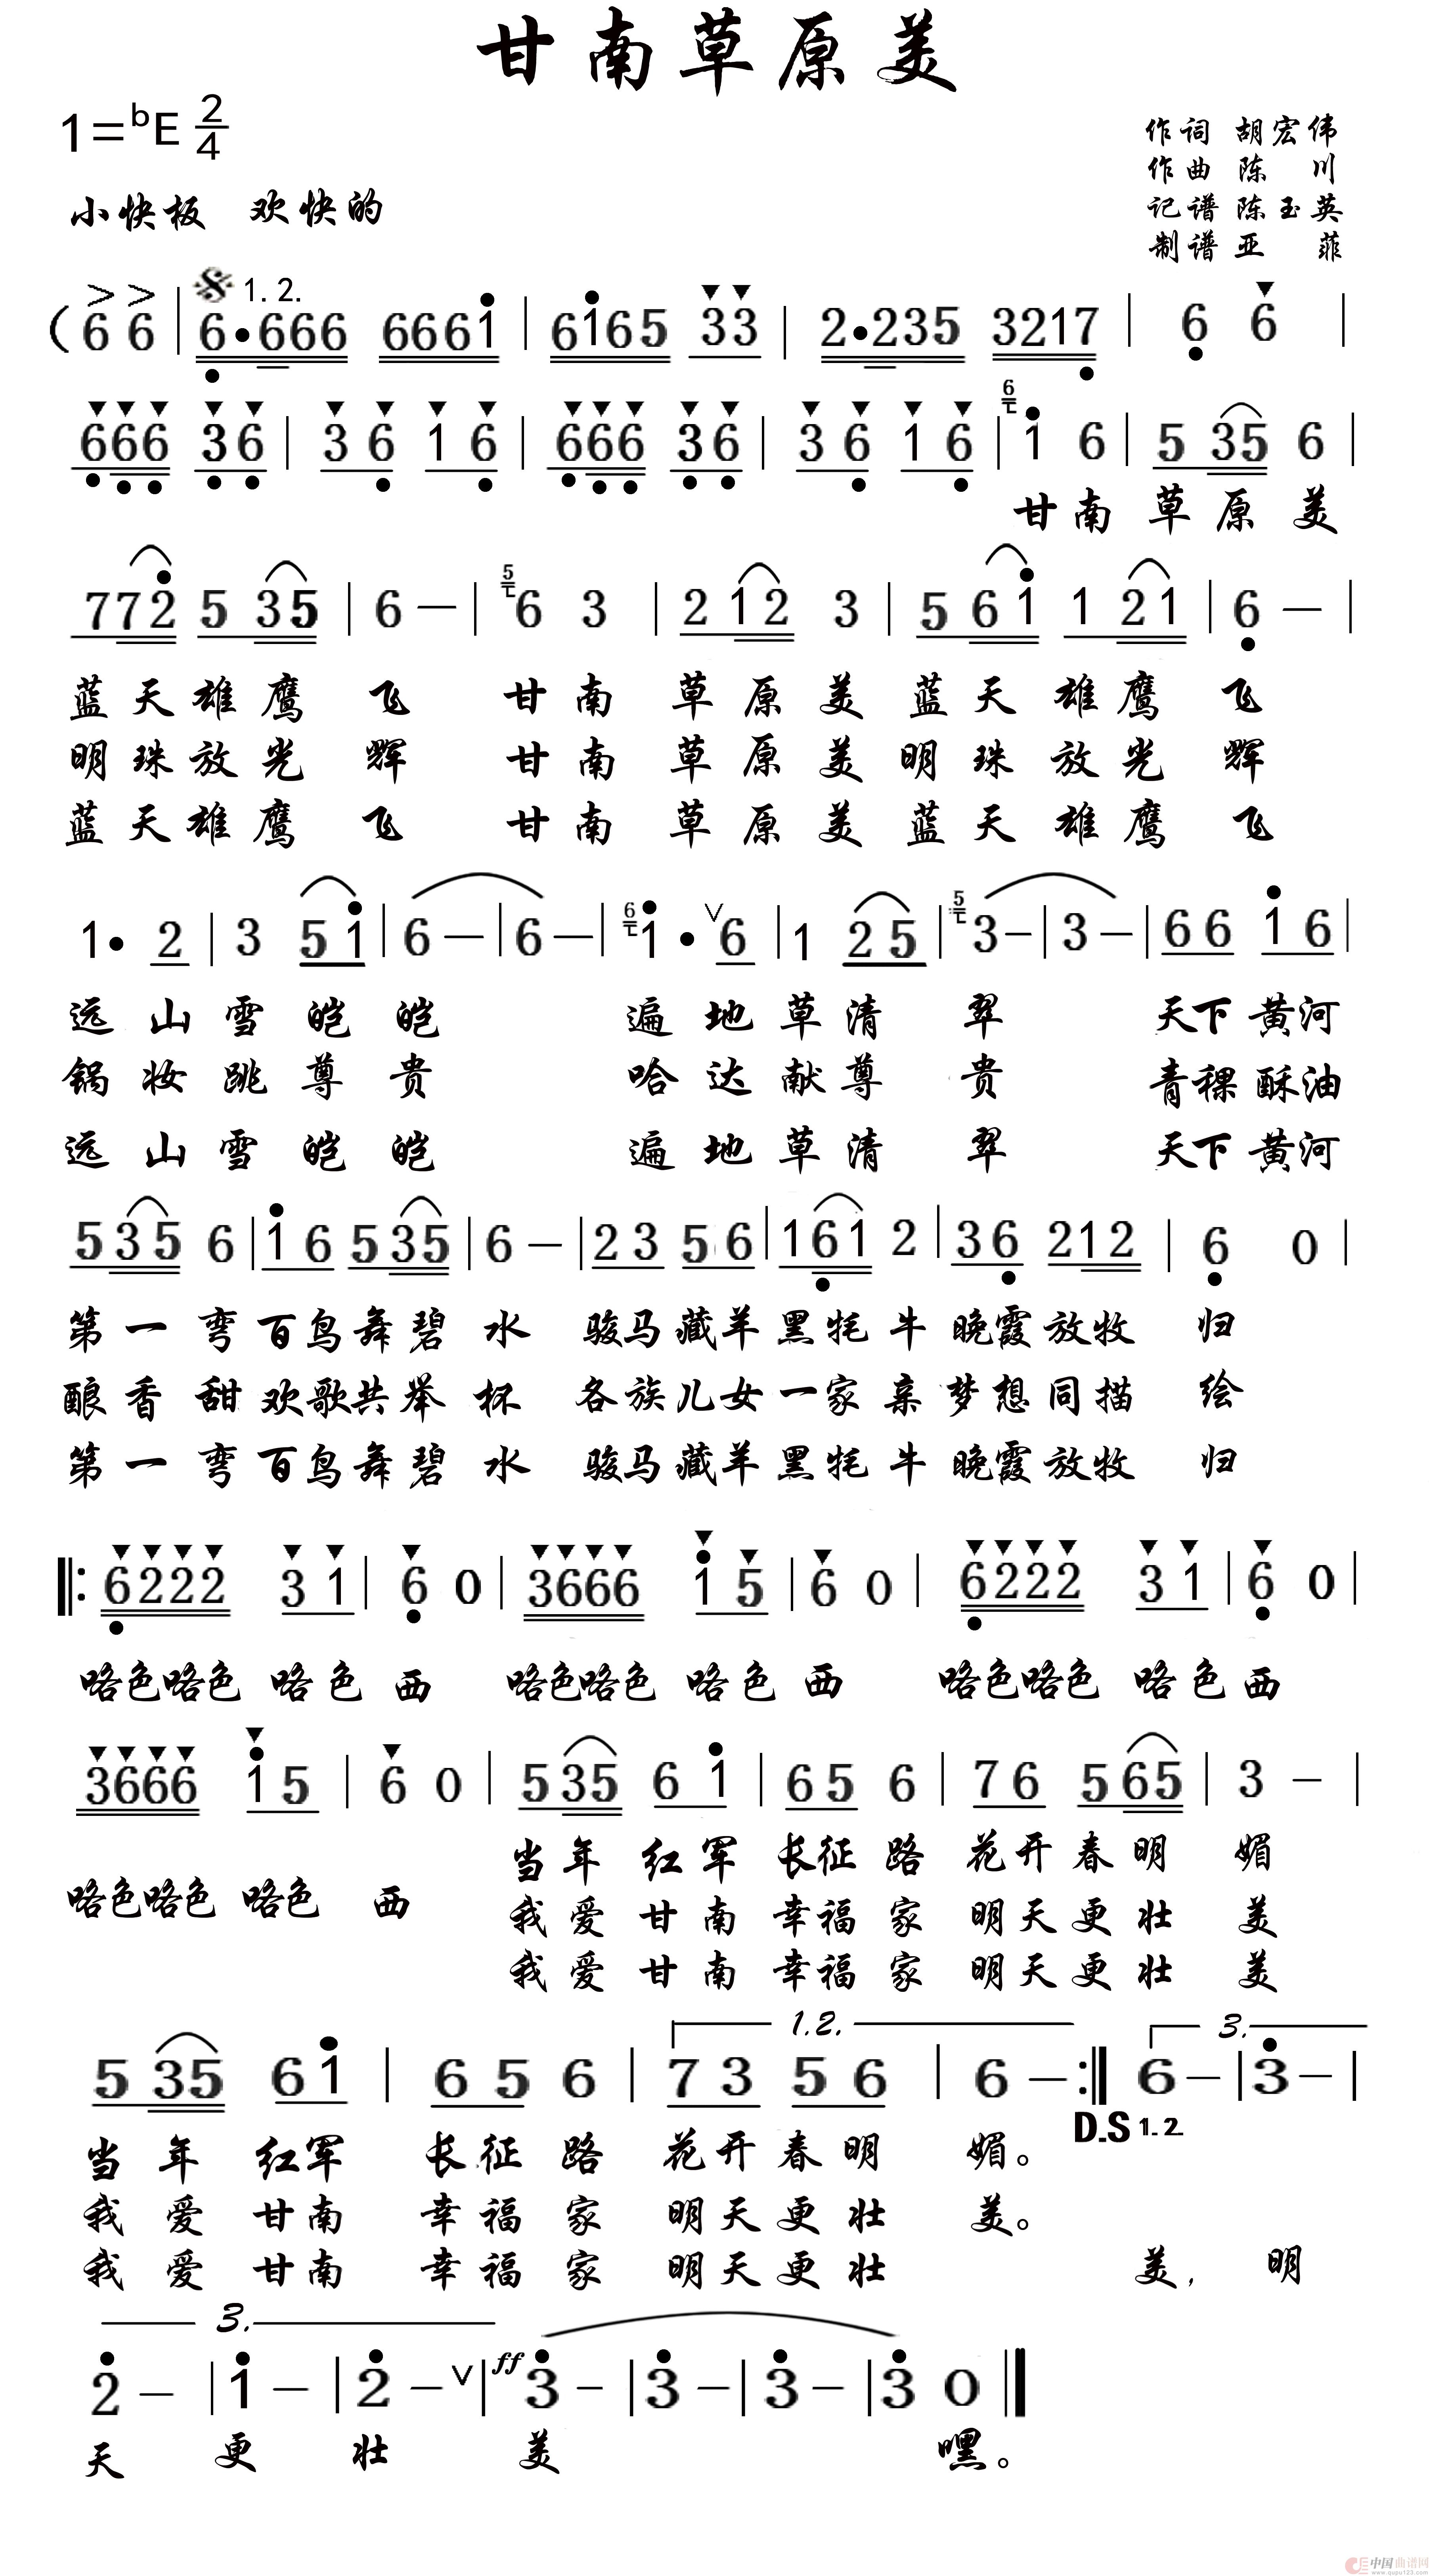 甘南草原美
1=bE 2/4
作词 胡宏伟
作曲 陈 川
小快板 欢快的
记谱 陈玉英
制谱 亚 菲
1.2.
( 6 6 | 6·666 6661 | 6165 33 | 2·235 3217 | 6 6 |
666 36 | 36 16 | 666 36 | 36 16 | 6 1 6 | 5 35 6 |
甘南 草原美
772 5 35 | 6 — | 5 6 3 | 2 12 3 | 5 61 1 21 | 6 — |
蓝天雄鹰 飞 甘南 草原美 蓝天 雄鹰 飞
明珠放光 辉 甘南 草原美 明珠 放光 辉
蓝天雄鹰 飞 甘南 草原美 蓝天 雄鹰 飞
1· 2 | 3 51 | 6 — | 6 — | 6 1· ∨ 6 | 1 25 | 5 3 — | 3 — | 66 16 |
远山雪皑皑 遍地草清翠 天下黄河
锅妆跳尊贵 哈达献尊贵 青稞酥油
远山雪皑皑 遍地草清翠 天下黄河
535 6 | 16 535 | 6 — | 23 56 | 161 2 | 36 212 | 6 0 |
第一弯百鸟舞碧水 骏马藏羊黑牦牛晚霞放牧 归
酿香甜欢歌共举杯 各族儿女一家亲梦想同描 绘
第一弯百鸟舞碧水 骏马藏羊黑牦牛晚霞放牧 归
‖: 6222 31 | 6 0 | 3666 15 | 6 0 | 6222 31 | 6 0 |
咯色咯色 咯色 西 咯色咯色 咯色 西 咯色咯色 咯色 西
3666 15 | 6 0 | 535 61 | 65 6 | 76 565 | 3 — |
当年 红军 长征路 花开春明 媚
咯色咯色 咯色 西
我爱 甘南 幸福家 明天更壮 美
我爱 甘南 幸福家 明天更壮 美
1.2. 3.
5 35 61 | 65 6 | 73 56 | 6 — :‖ 6 — | 3 — |
D.S 1.2.
当年 红军 长征路 花开春明 媚。
我爱 甘南 幸福家 明天更壮 美。
我爱 甘南 幸福家 明天更壮 美, 明
3.
2 — | 1 — | 2 — ∨ | ff 3 — | 3 — | 3 — | 3 0 ‖
天 更 壮 美 嘿。
中国曲谱网
www.qupu123.com